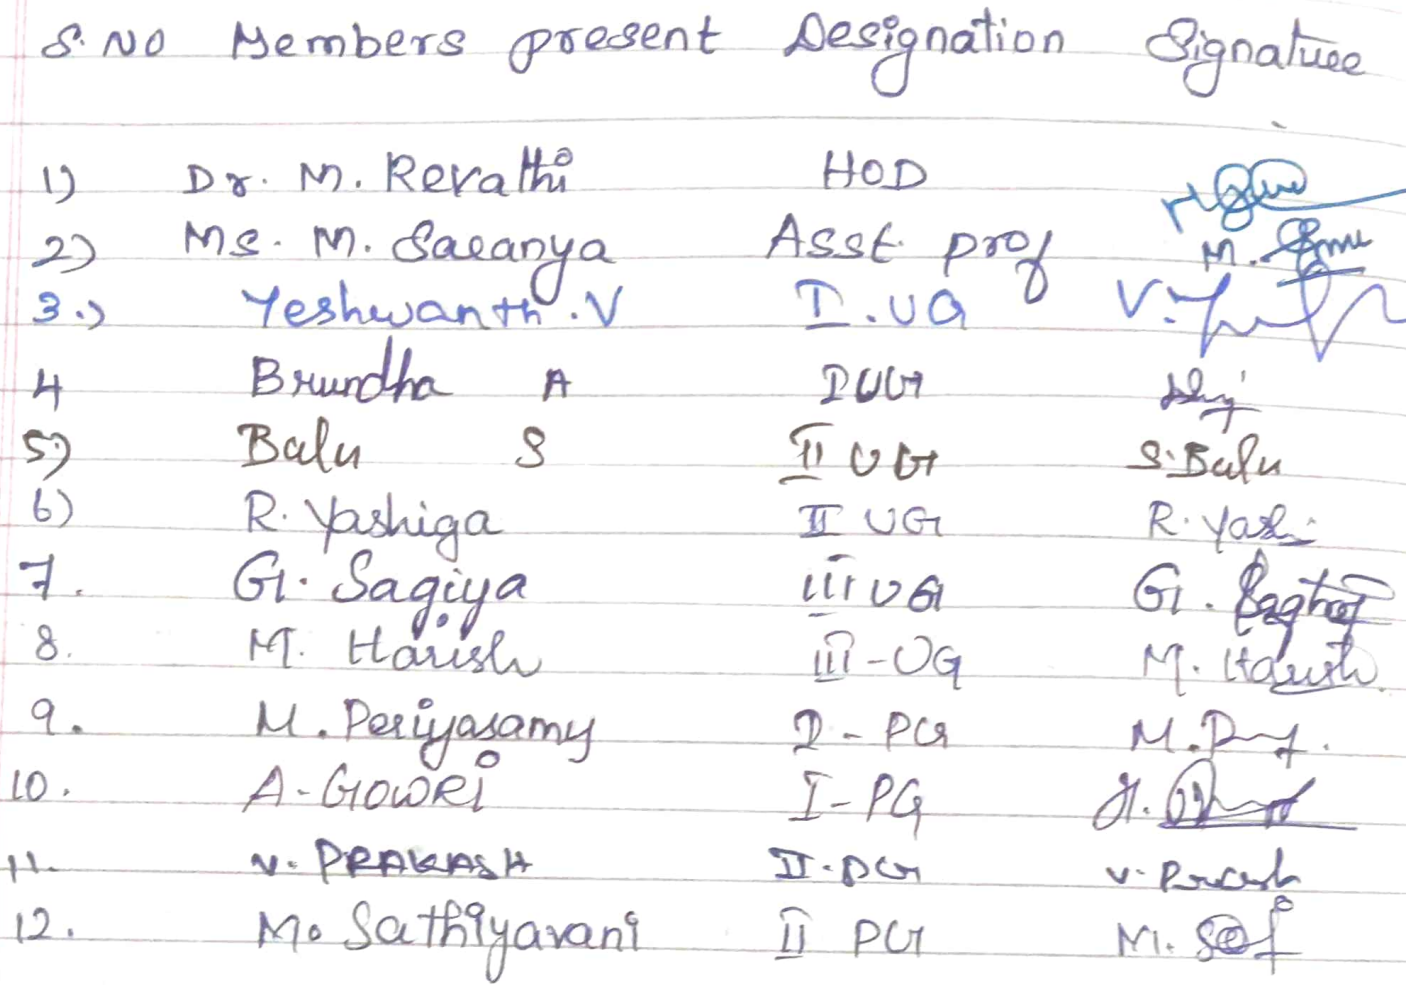 S.No Members present Designation Signature
1) Dr. M. Revathi HOD
2) Ms. M. Saranya Asst. prof M.
3.) Yeshwanth.V I.UG V.
4 Brundha A I UG
5) Balu S II UG S.Balu
6) R. Yashiga II UG R. Yashi
7. G. Sagiya III UG G.
8. M. Harish III-UG M. Harish
9. M. Periyasamy I-PG M.
10. A-GOWRi I-PG
11. V. PRAKASH II.PG V. Prakash
12. M. Sathiyavani II PG M.